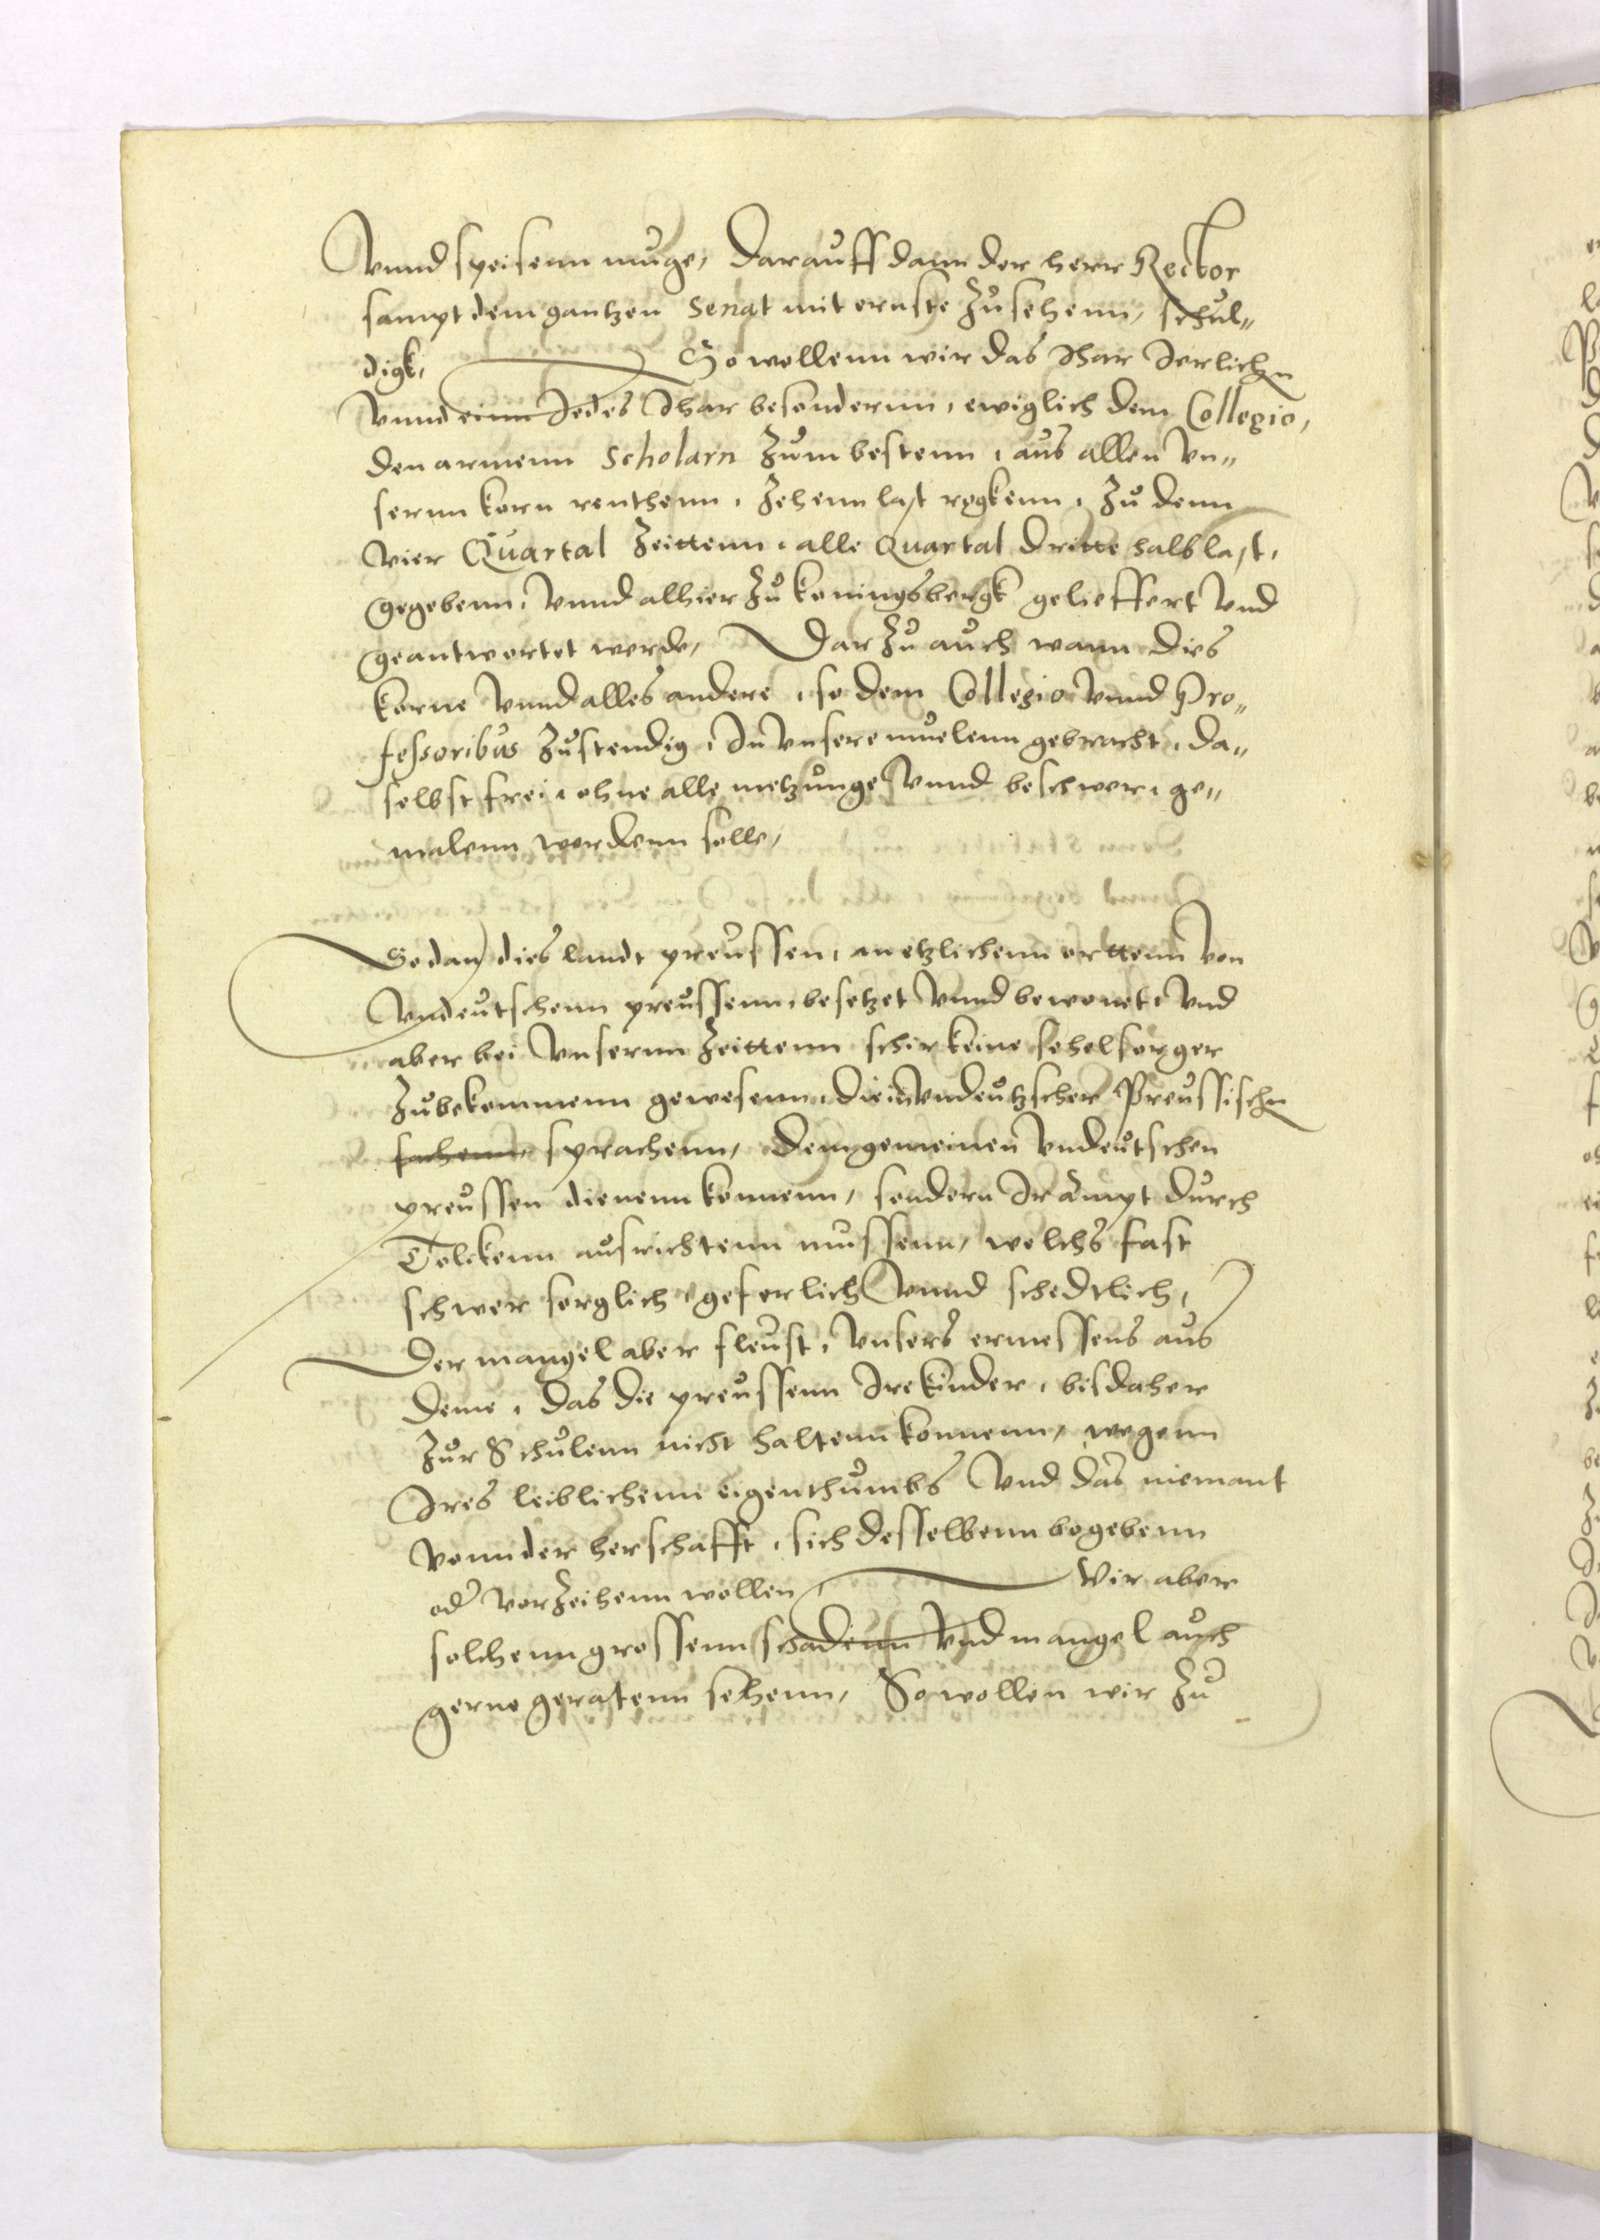 Vnnd speisenn muge, Darauff dann der herr Rector
sampt dem gantzen Senat mit ernste Zusehenn, schul„
digk, So wollenn wir das Jhar Jerlichn
Vnnd einn Jedes Jhar besondernn, ewiglich dem Collegio,
den armenn Scholarn Zum bestenn, aus allen vn„
sernn korn renthenn, Zehenn last rogkenn, Zu denn
vier Quartal Zeittenn, alle Quartal dritte halb last,
gegebenn, Vnnd alhier Zu koningsbergk gelieffert Vnd
geantwortet werde, Dar Zu auch wann dies
korne Vnnd alles andere, so dem Collegio Vnnd Pro„
fessoribus Zustendig, In Vnsere muelenn gebracht, da„
selbst frei, ohne alle metzunge Vnnd beschwer, ge„
malenn werdenn solle,
So dan dies landt preussen, an etzlichenn orttenn Von
Vndeutschenn preussenn besetzet Vnnd bewonet, Vnd
aber bei Vnsernn Zeittenn schir keine sehelsorger
Zubekommenn gewesenn, die in Vndeutzscher Preussischn
sachenn, sprachenn, dem gemeinen Vndeutschen
preussen dienenn konnenn, sondern Ir ampt durch
Tolckenn ausrichtenn mussenn, welchs fast
schwer sorglich, geferlich Vnnd schedtlich,
Der mangel aber fleust, Vnsers ermessens aus
deme, das die preussenn Ire kinder, bis daher
Zur Schulenn nicht haltenn konnenn, wegenn
Ires leiblichenn eigenthumbs Vnd das niemant
vonn der herschafft, sich desselbenn begebenn
oder vorZeihenn wollen, Wir aber
solchenn grossenn schadenn Vnd mangel auch
gerne geratenn sehenn, So wollen wir Zu